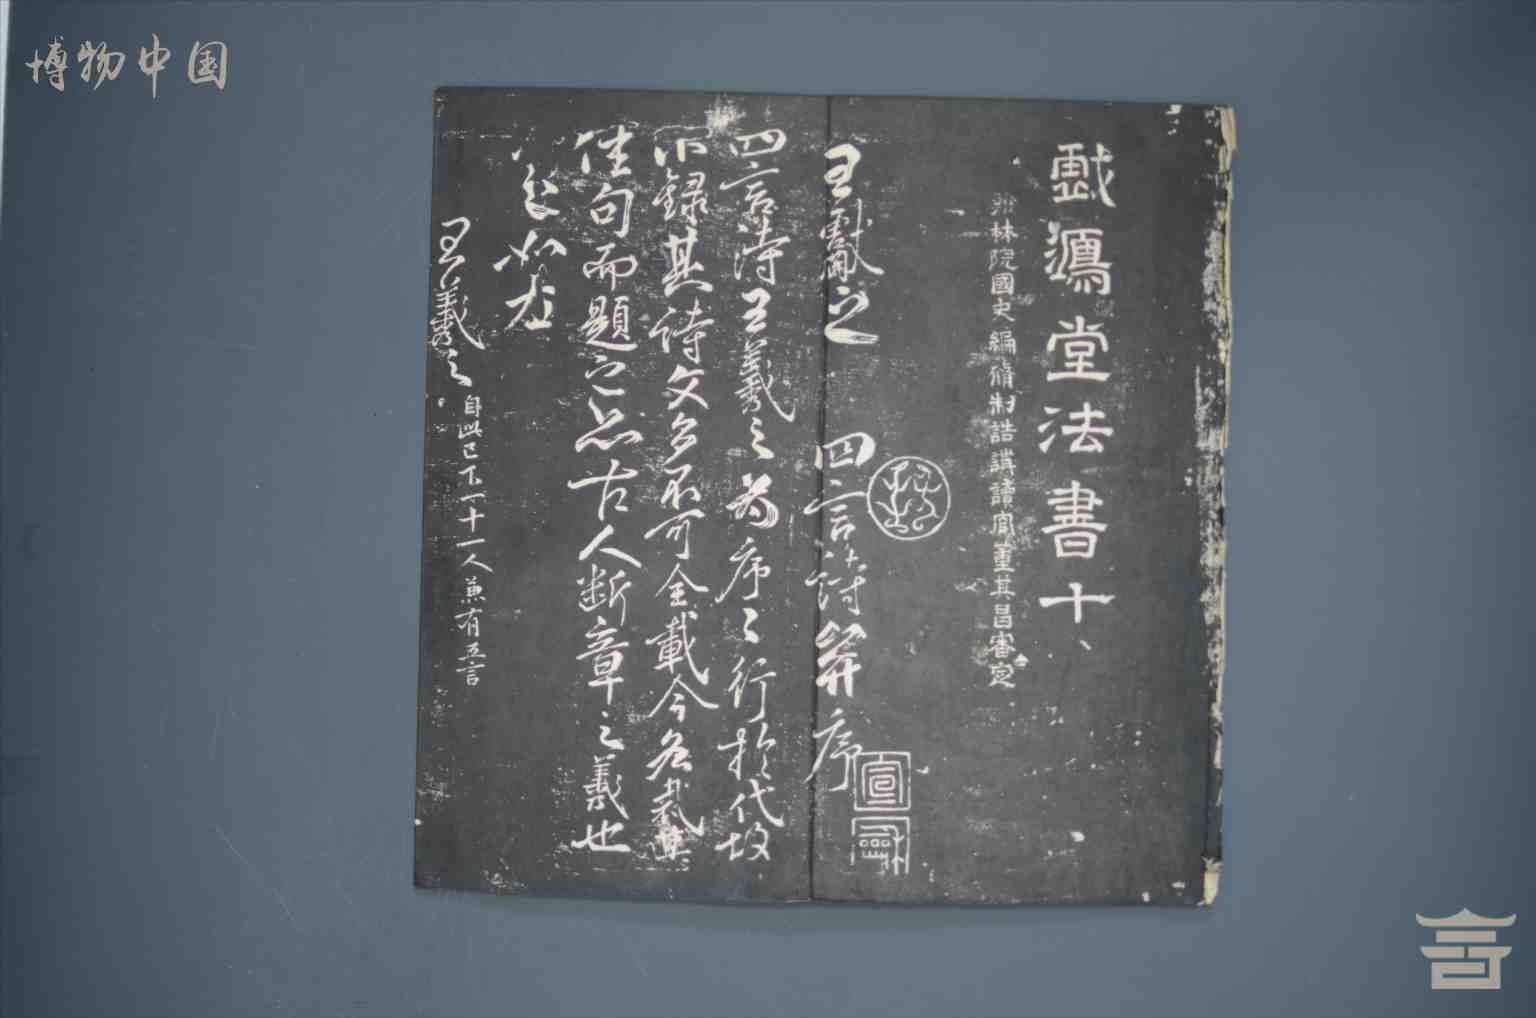 博物中国
戲鴻堂法書十
林院國史編脩制誥講讀官董其昌審定
王獻之 四言詩并序
四言詩王羲之為序序行於代故
不錄其詩文多不可全載今各裁其
佳句而題之亦古人斷章之義也
王羲之 自此已下一十一人兼有五言